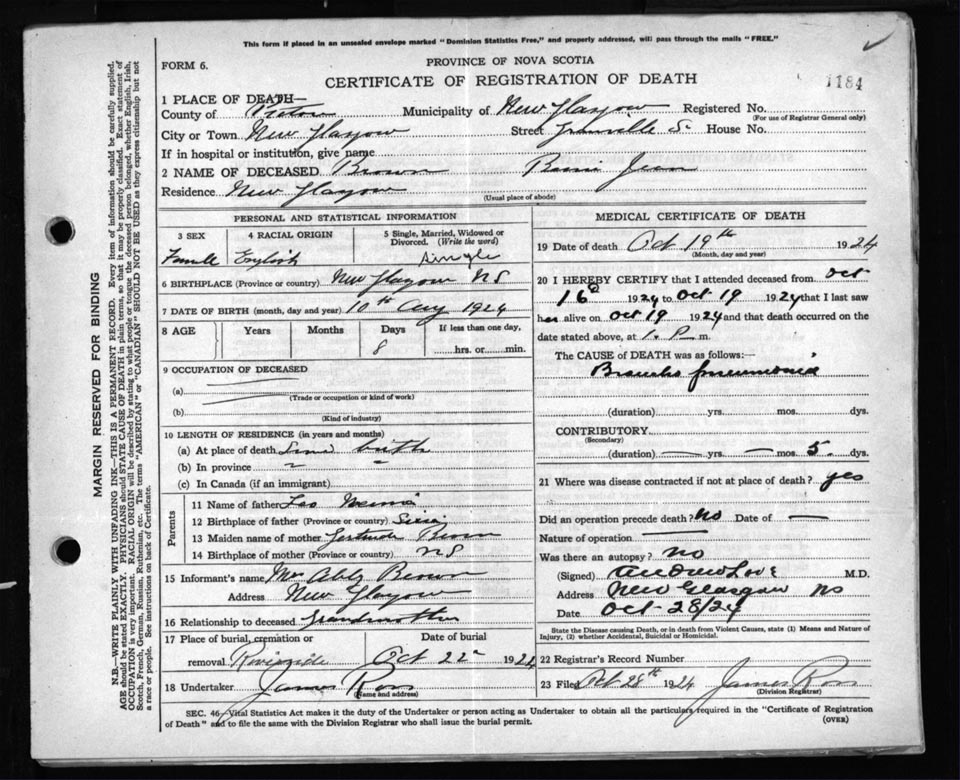 This form if placed in an unsealed envelope marked "Dominion Statistics Free," and properly addressed, will pass through the mails "FREE."
FORM 6.
PROVINCE OF NOVA SCOTIA
CERTIFICATE OF REGISTRATION OF DEATH
1184
1 PLACE OF DEATH—
County of Pictou Municipality of New Glasgow Registered No.
(For use of Registrar General only)
City or Town New Glasgow Street Granville St House No.
If in hospital or institution, give name
2 NAME OF DECEASED Brown Jean
Residence New Glasgow
(Usual place of abode)
PERSONAL AND STATISTICAL INFORMATION
3 SEX 4 RACIAL ORIGIN 5 Single, Married, Widowed or Divorced. (Write the word)
Female English Single
6 BIRTHPLACE (Province or country) New Glasgow NS
7 DATE OF BIRTH (month, day and year) 10th Aug 1924
8 AGE Years Months Days If less than one day,
8 hrs. or min.
9 OCCUPATION OF DECEASED
(a)
(Trade or occupation or kind of work)
(b)
(Kind of industry)
10 LENGTH OF RESIDENCE (in years and months)
(a) At place of death Since birth
(b) In province " "
(c) In Canada (if an immigrant)
Parents
11 Name of father Leo
12 Birthplace of father (Province or country)
13 Maiden name of mother Gertrude Brown
14 Birthplace of mother (Province or country) NS
15 Informant's name Mrs Brown
Address New Glasgow
16 Relationship to deceased Grandmother
17 Place of burial, cremation or Date of burial
removal Riverside Oct 22 1924
18 Undertaker James Ross
(Name and address)
MEDICAL CERTIFICATE OF DEATH
19 Date of death Oct 19th 1924
(Month, day and year)
20 I HEREBY CERTIFY that I attended deceased from Oct
16 1924 to Oct 19 1924 that I last saw
her alive on Oct 19 1924 and that death occurred on the
date stated above, at 1. P. m.
The CAUSE OF DEATH was as follows:—
Broncho pneumonia
(duration) yrs. mos. dys.
CONTRIBUTORY
(Secondary)
(duration) — yrs. — mos. 5. dys.
21 Where was disease contracted if not at place of death? yes
Did an operation precede death? No Date of —
Nature of operation —
Was there an autopsy? no
(Signed) Andrew Love M.D.
Address New Glasgow NS
Date Oct-28/24
State the Disease causing Death, or in death from Violent Causes, state (1) Means and Nature of
Injury, (2) whether Accidental, Suicidal or Homicidal.
22 Registrar's Record Number
23 Filed Oct 28th 1924 James Ross
(Division Registrar)
SEC. 46—Vital Statistics Act makes it the duty of the Undertaker or person acting as Undertaker to obtain all the particulars required in the "Certificate of Registration
of Death" and to file the same with the Division Registrar who shall issue the burial permit. (OVER)
MARGIN RESERVED FOR BINDING
N.B.—WRITE PLAINLY WITH UNFADING INK—THIS IS A PERMANENT RECORD. Every item of information should be carefully supplied.
AGE should be stated EXACTLY. PHYSICIANS should STATE CAUSE OF DEATH in plain terms, so that it may be properly classified. Exact statement of
OCCUPATION is very important. RACIAL ORIGIN will be described by stating to what people or tongue the deceased person belonged, whether English, Irish,
Scotch, French, German, Russian, Ruthenian, etc. The terms "AMERICAN" or "CANADIAN" SHOULD NOT BE USED as they express citizenship but not
a race or people. See instructions on back of Certificate.